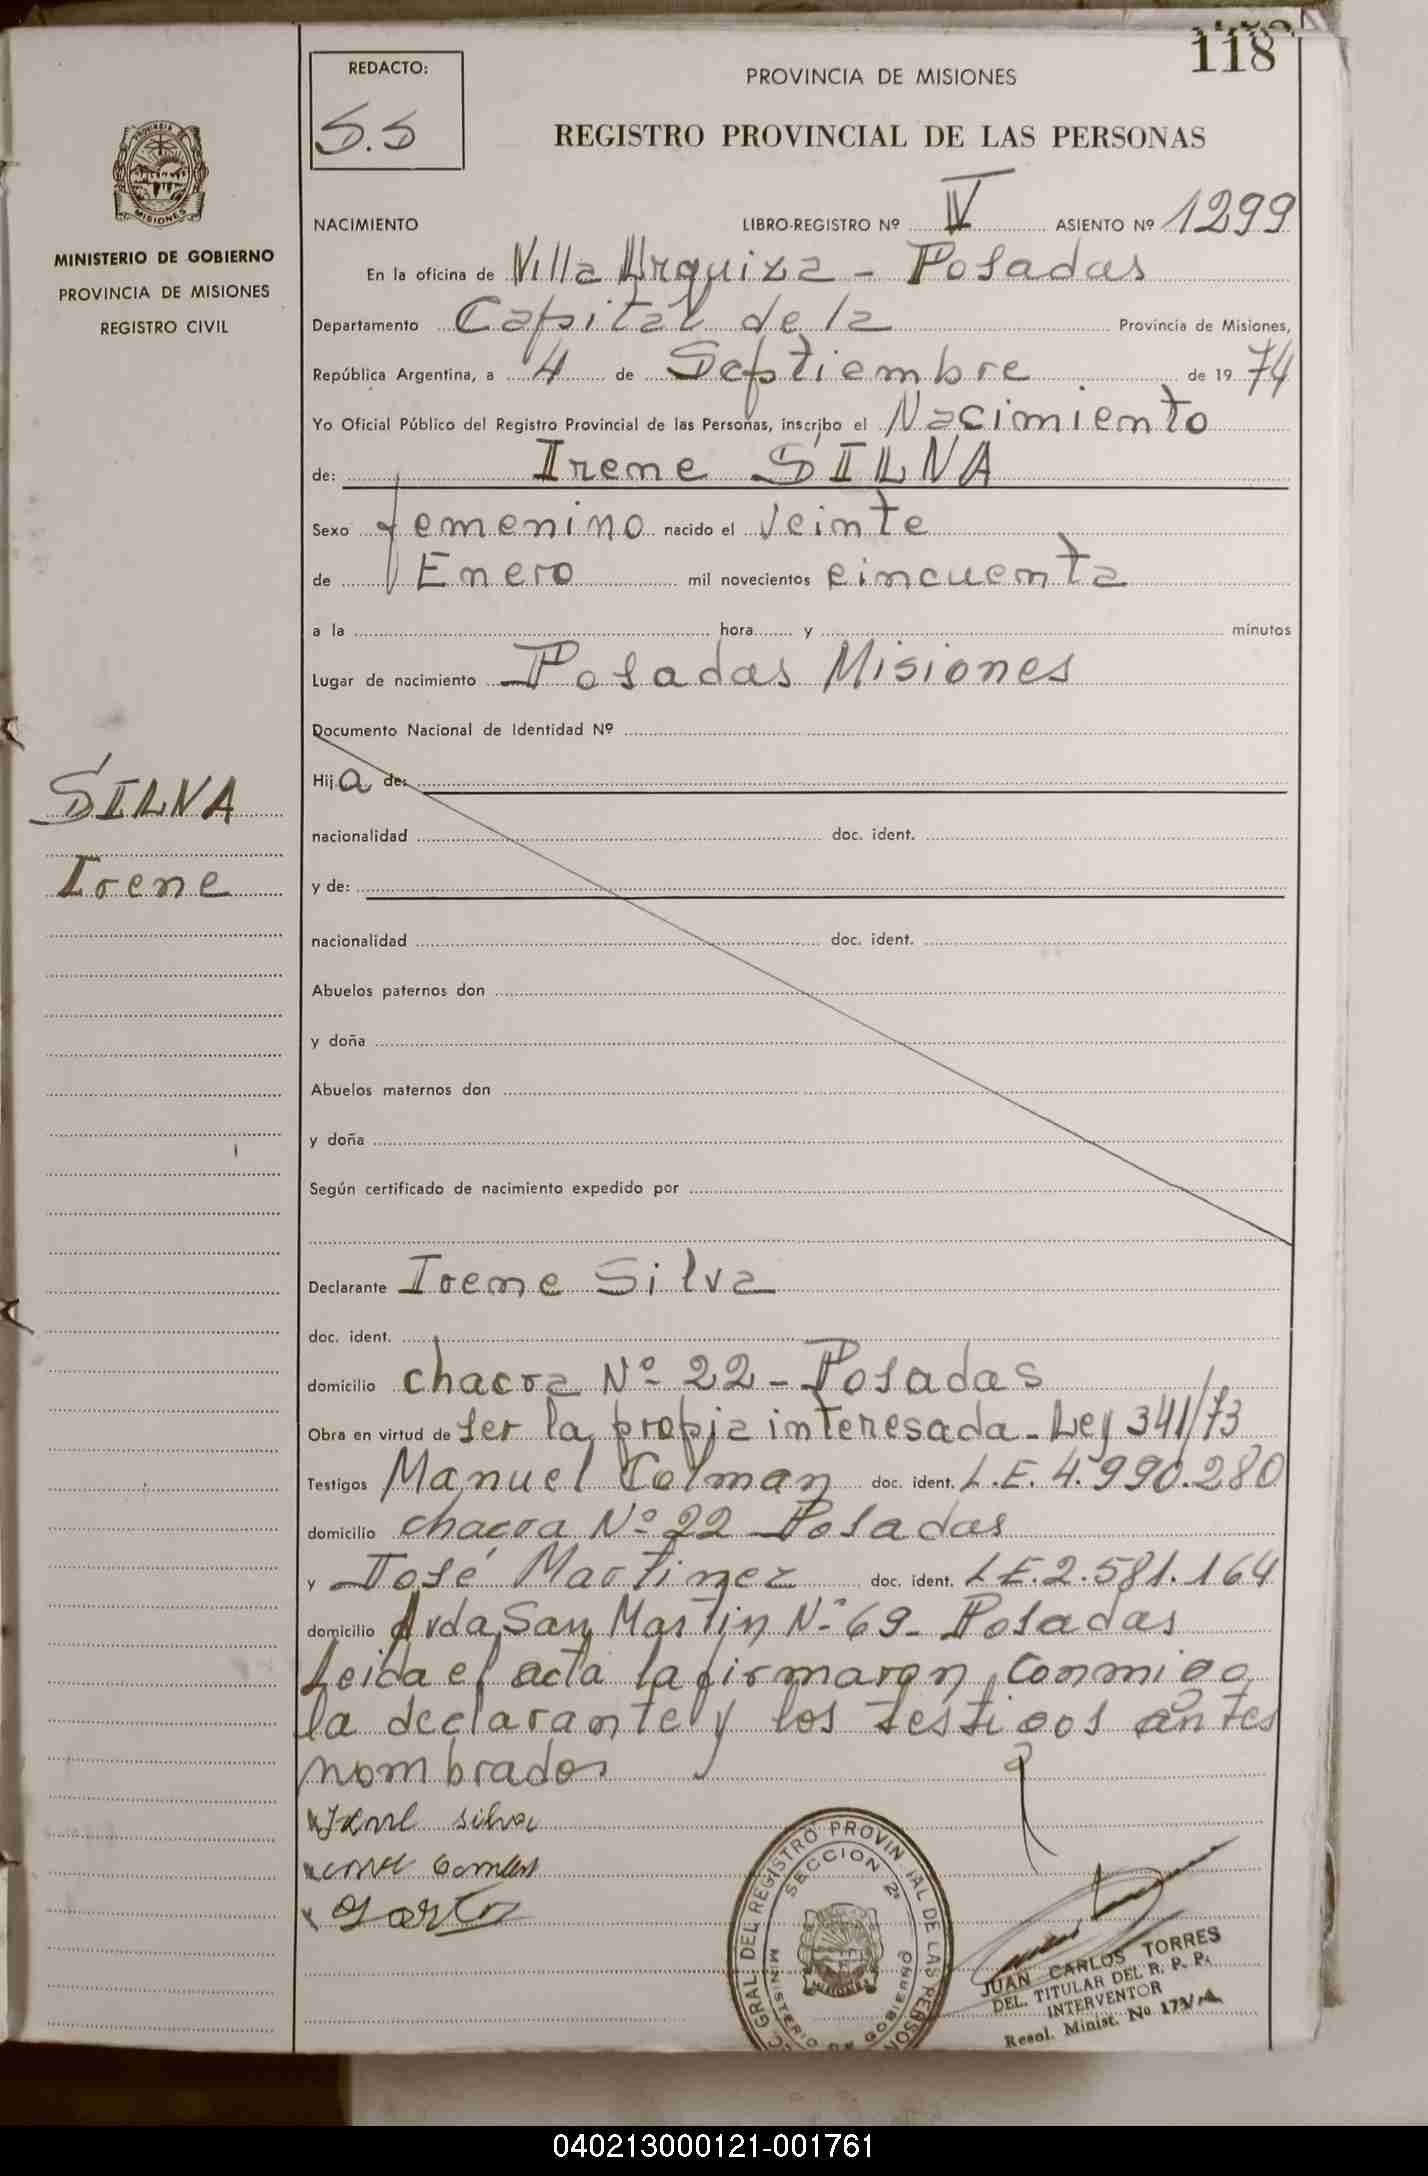 118
REDACTO:
S.S
PROVINCIA DE MISIONES
REGISTRO PROVINCIAL DE LAS PERSONAS
MISIONES
MINISTERIO DE GOBIERNO
PROVINCIA DE MISIONES
REGISTRO CIVIL
SILVA
Irene
NACIMIENTO LIBRO-REGISTRO Nº IV ASIENTO Nº 1299
En la oficina de Villa Urquiza - Posadas
Departamento Capital de la Provincia de Misiones,
República Argentina, a 4 de Septiembre de 1974
Yo Oficial Público del Registro Provincial de las Personas, inscribo el Nacimiento
de: Irene SILVA
Sexo femenino nacido el veinte
de Enero mil novecientos cincuenta
a la hora y minutos
Lugar de nacimiento Posadas Misiones
Documento Nacional de Identidad Nº
Hija de:
nacionalidad doc. ident.
y de:
nacionalidad doc. ident.
Abuelos paternos don
y doña
Abuelos maternos don
y doña
Según certificado de nacimiento expedido por
Declarante Irene Silva
doc. ident.
domicilio chacra Nº 22 - Posadas
Obra en virtud de ser la propia interesada - Ley 341/73
Testigos Manuel Colman doc. ident. L.E. 4.990.280
domicilio chacra Nº 22 Posadas
y José Martinez doc. ident. L.E. 2.581.164
domicilio Avda San Martin Nº 69 - Posadas
Leida el acta la firmaron conmigo
la declarante y los testigos antes
nombrados
Irene silva
SECCION 2ª
MINISTERIO DE GOBIERNO
MISIONES
JUAN CARLOS TORRES
DEL. TITULAR DEL R. P. P.
INTERVENTOR
Resol. Minist. No
040213000121-001761